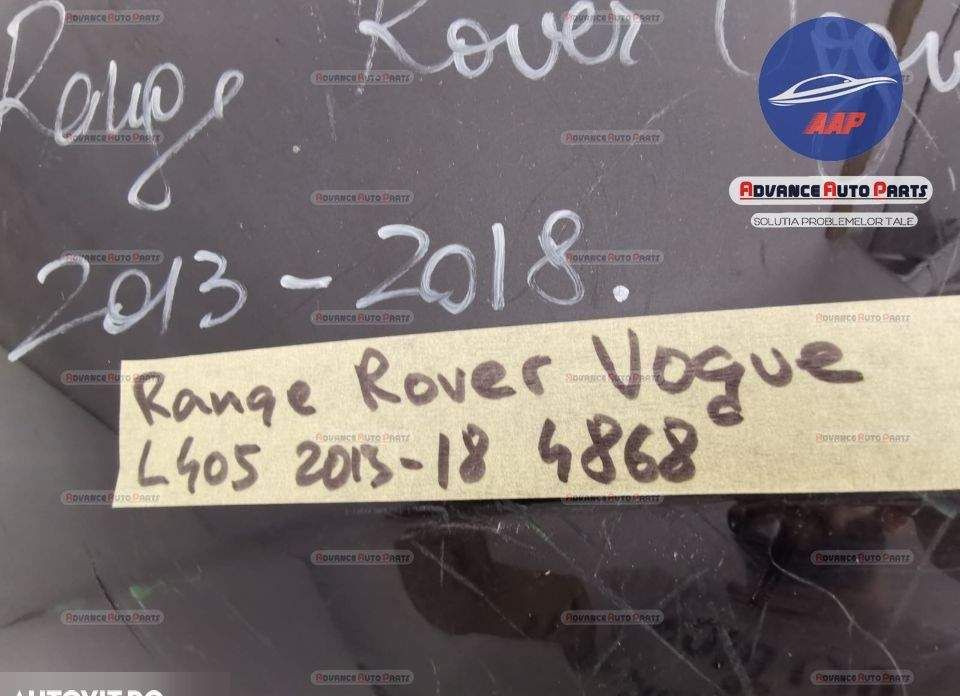 Range Rover
AAP
ADVANCE AUTO PARTS
SOLUTIA PROBLEMELOR TALE
2013-2018.
Range Rover Vogue
L405 2013-18 4868
AUTOVIT.RO